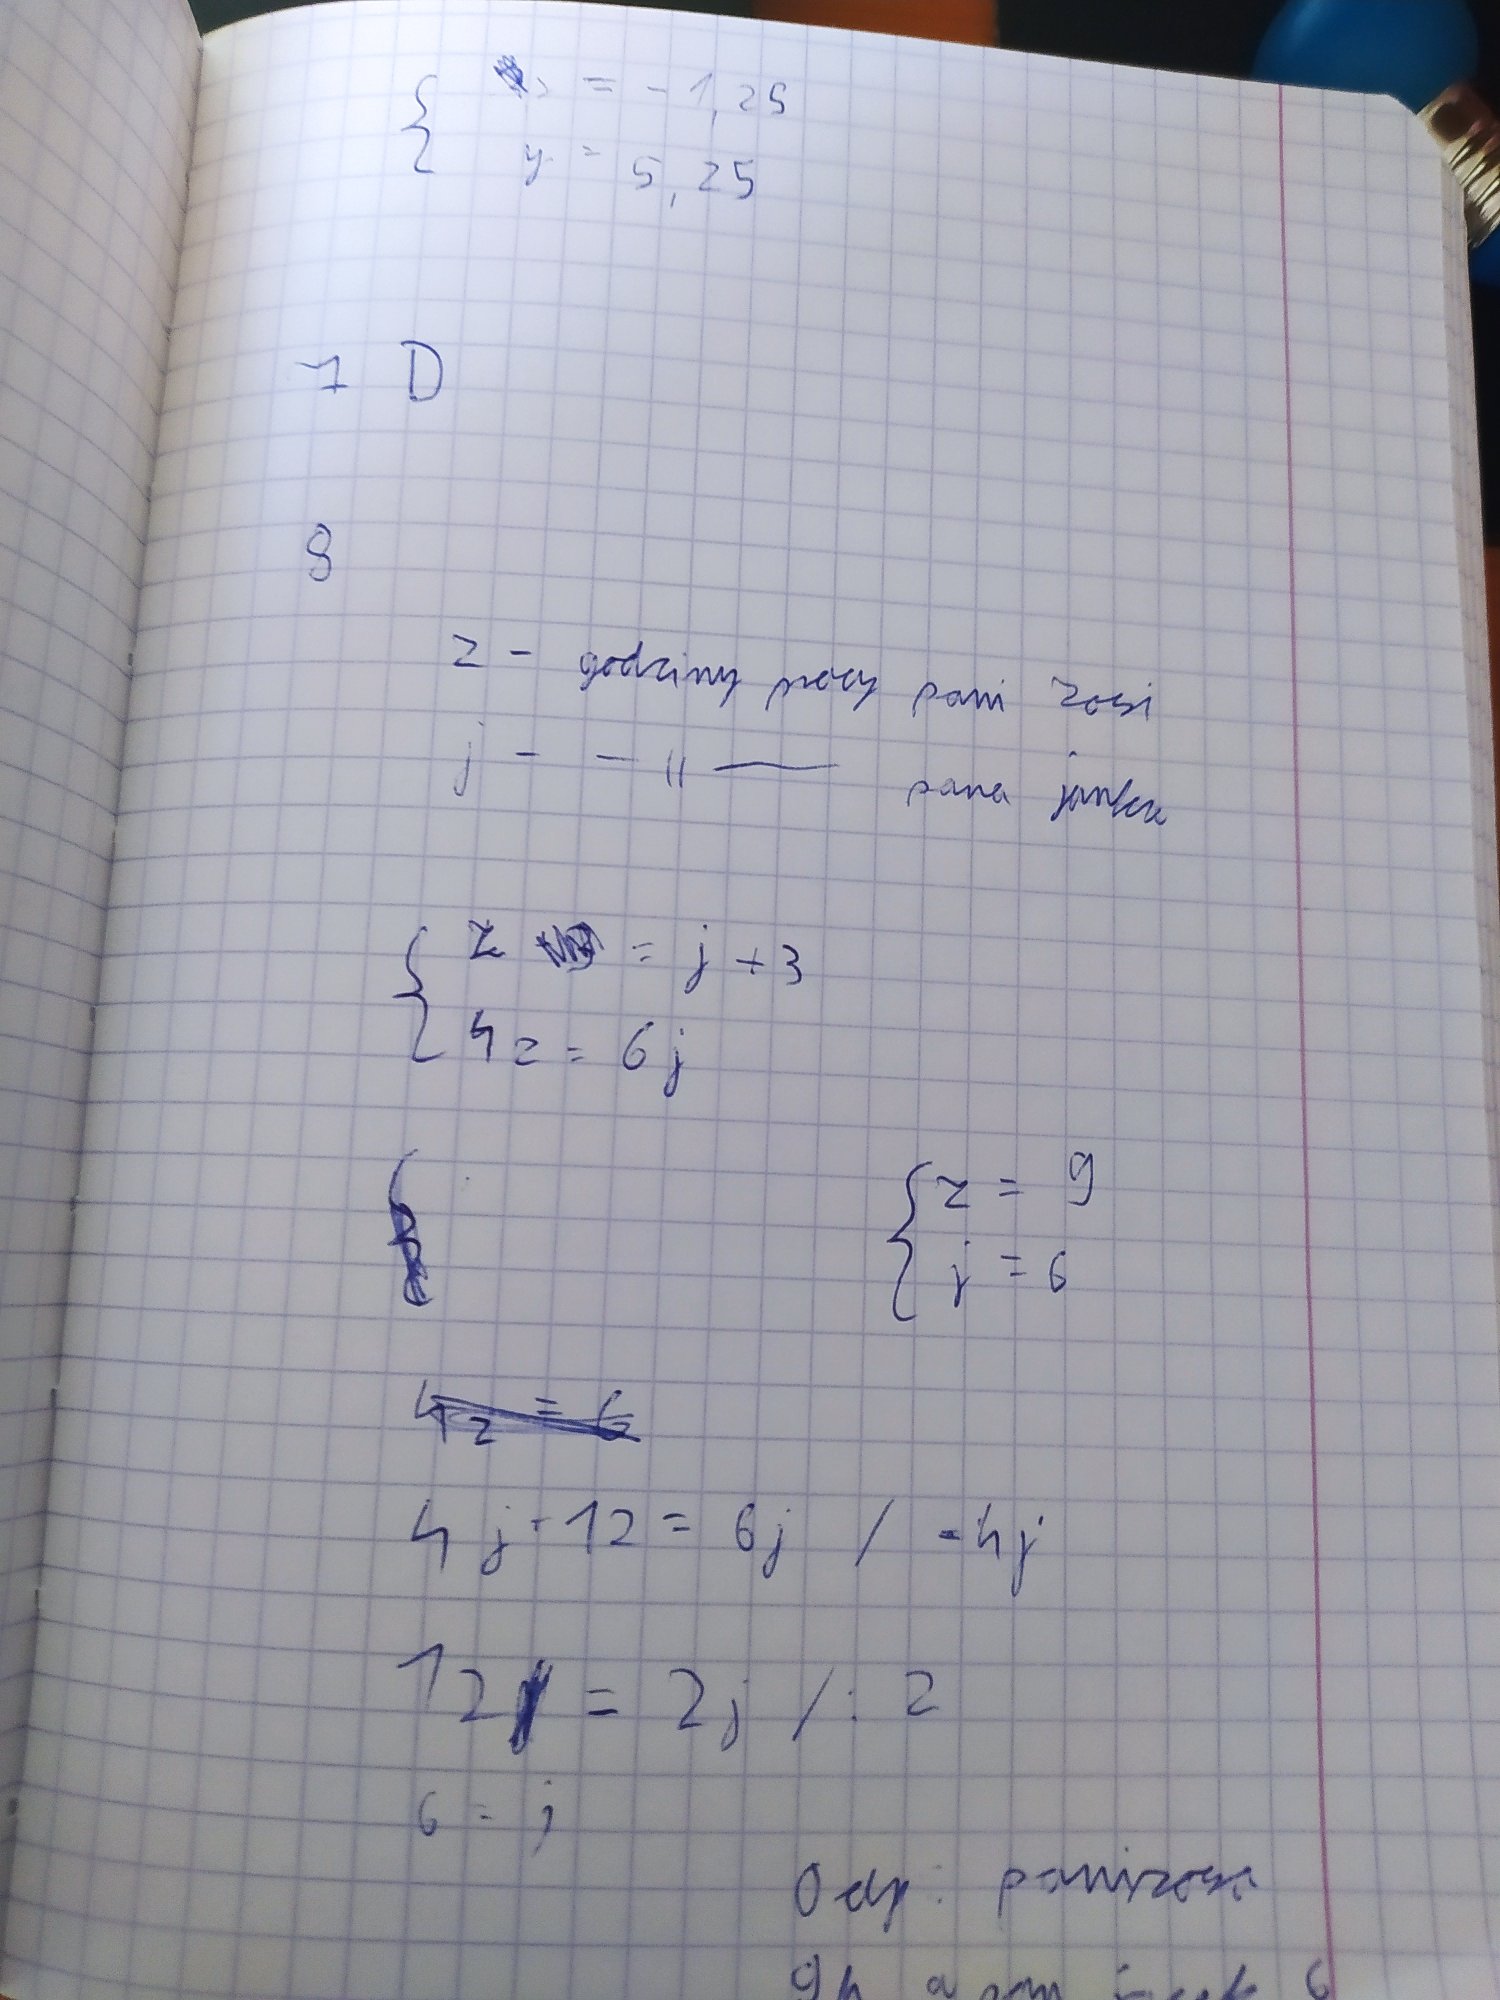 = -1,25
y = 5,25
7 D
8
z - godziny pracy pani zosi
j - -||- pana janka
z = j + 3
4z = 6j
z = 9
j = 6
4z = 6
4j + 12 = 6j / -4j
12 = 2j / : 2
6 = j
Odp: pani zosia
9h a pan 6